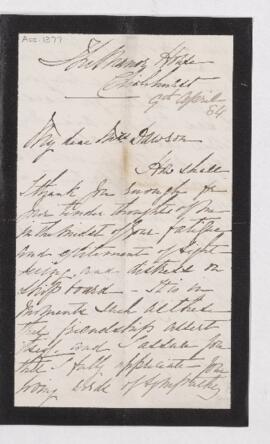 Acc. 1377
The Manor House
Chislehurst
9th April
84
My dear Miss Dawson
How shall
I thank you enough for
your tender thoughts of me
in the midst of your fatigue
and excitement of sight
seeing and distress on
Ship board - It is in
moments such as these
true friendships assert
itself and I assure you
that I fully appreciate your
loving words of sympathy